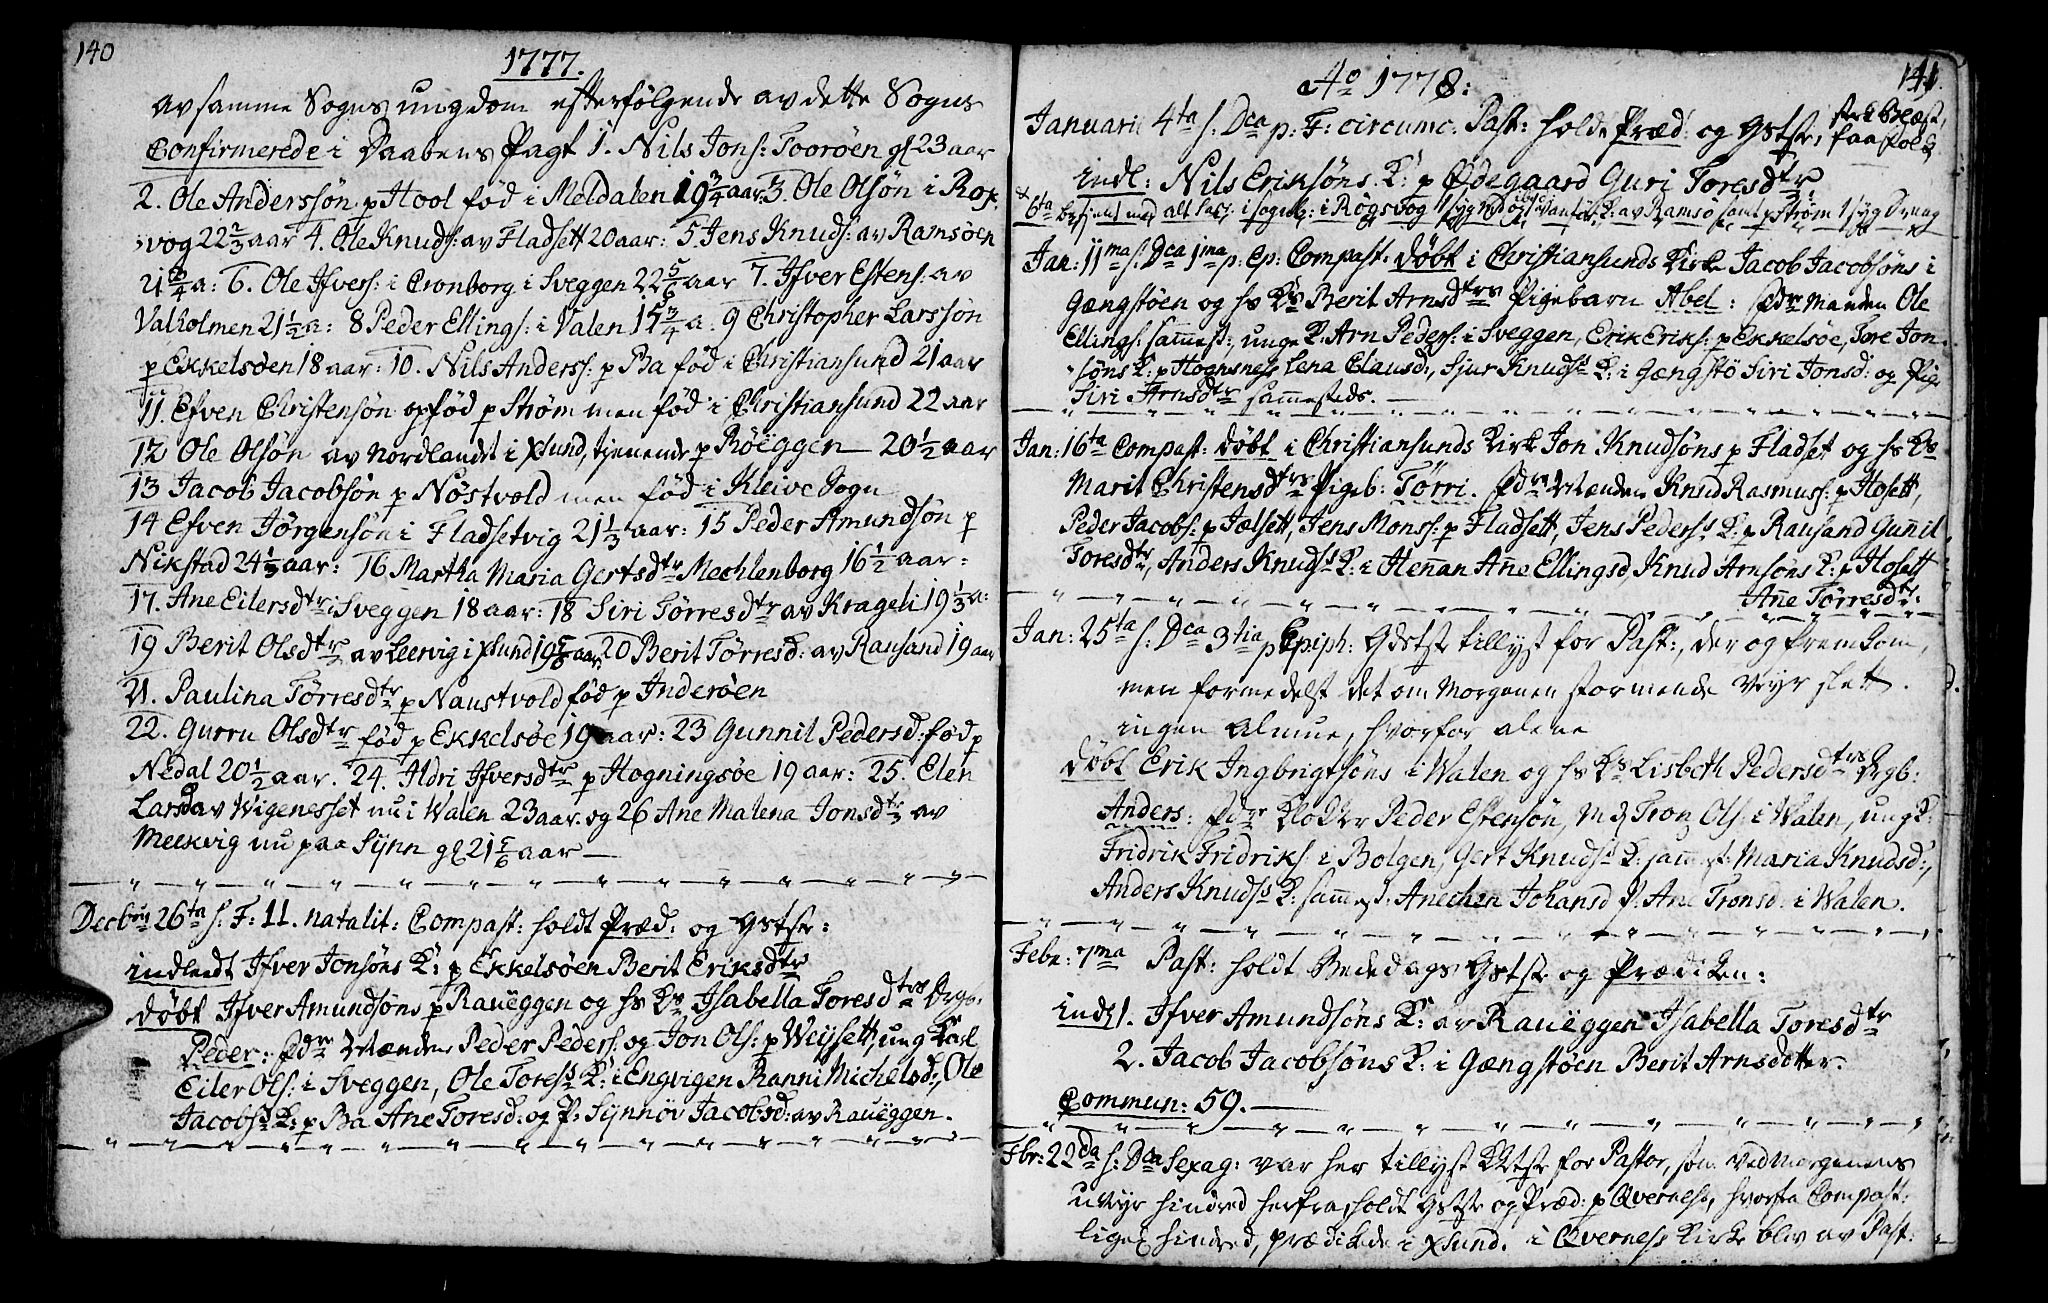 140
1777.
av samme Sogns ungdom efterfølgende av dette Sogns
Confirmerede i Daabens Pagt 1. Nils Jons: Toorøen gl 23 aar
2. Ole Anderssøn p Hool fød i Meldalen 19 3/4 aar. 3. Ole Olsøn i Rox,
vog 22 2/3 aar 4. Ole Knuds: av Fladsett 20 aar: 5 Jens Knuds: av Ramsøen
21 3/4 a: 6. Ole Ifvers: i Cronborg i Sveggen 22 5/6 aar 7. Ifver Estens: av
Valholmen 21 1/2 a: 8 Peder Ellings: i Valen 15 3/4 a: 9 Christopher Larssøn
p Ekkelsøen 18 aar: 10. Nils Anders: p Ba fød i Christiansund 21 aar
11. Efven Christensøn opfød p Strøm men fød i Christiansund 22 aar
12 Ole Olsøn av Nordlandet i Xsund, tjenende p Røeggen — 20 1/2 aar
13 Jacob Jacobsøn p Nøstvold men fød i Kleive Sogn
14 Efven Jørgensøn i Fladsetvig 21 1/3 aar: 15 Peder Amundsøn p
Nikstad 24 1/3 aar: 16 Martha Maria Gertsdtr Mechlenborg 16 1/2 aar:
17. Ane Eilersdtr i Sveggen 18 aar: 18 Siri Tørresdtr av Krageli 19 1/3 a:
19 Berit Olsdtr av Leervig i Xsund 19 5/6 aar 20 Berit Tørresd: av Rausand 19 aar
21. Paulina Tørresdtr p Naustvold fød p Inderøen
22. Gurru Olsdtr fød p Ekkelsøe 19 aar: 23 Gunnil Pedersd: fød p
Nedal 20 1/2 aar. 24. Ildri Ifversdtr p Hogningsøe 19 aar: 25. Elen
Larsd av Wigenesset nu i Walen 23 aar. og 26 Ane Malena Jonsdtr av
Meekvig nu paa Synn gl 21 5/6 aar —
Decbris 26ta s: F: 11. natalit: Compast: holdt Præd: og Gstste:
indleedt Ifver Jonsøns K: p Ekkelsøen Berit Eriksdtr
døbt Ifver Amundsøns p Raueggen og hs Ks Isabella Toresdtrs Drgb:
Peder: Fdre Mændene Peder Peders: og Jon Ols: p Weysett, ung Karl
Eiler Ols: i Sveggen, Ole Toress K: i Engvigen Ranni Michelsd:, Ole
Jacobss K: p Ba Ane Toresd: og P: Synnøv Jacobsd: av Raueggen.
141.
Ao 1778:
Januarii 4ta s: Dca p: F: circumc: Past: holdt Præd: og Gstste, sterk blæst,
faa folk
indl: Nils Eriksøns K: p Ødegaard Guri Toresdtr
Jan: 11ma s: Dca 1ma p: Ep: Compast: døbt i Christiansunds Kirke Jacob Jacobsøns i
Gængstøen og hs Ks Berit Arnsdtrs Pigebarn Abel: Fdre Manden Ole
Ellings: samest:, unge K: Arn Peders: i Sveggen, Erik Eriks: p Ekkelsøe, Tore Jon-
søns K: p Hognsnes Lena Clausd:, Sjur Knudss K: i Gængstø Siri Jonsd: og Pig:
Siri Arnsdtr sammesteds. —
Jan: 16ta Compast: døbt i Christiansunds Kirke Jon Knudsøns p Fladset og hs Ks
Marit Christensdtrs Pigeb: Tørri. Fdre Mændene Knud Rasmuss: p Hosett,
Peder Jacobs: p Jælsett, Jens Monss: p Fladsett, Jens Pederss K: p Rausand Gunil
Toresdtr, Anders Knudss K: i Henan Ane Ellingsd Knud Arnsøns K: p Hosett
Ane Tørresdtr:
Jan: 25ta s: Dca 3tia p Epiph: Gdstste tillyst for Past:, der og fremkom,
men formedelst det om Morgenen stormende Veyr slett
ingen Almue, hvorfor alene
døbt Erik Ingbrigtsøns i Walen og hs Ks Lisbeth Pedersdtrs Drgb:
Anders: Fdre Klokker Peder Estensøn, M: Tron Ols: i Walen, ung K:
Fridrik Fridriks: i Bolgen, Gert Knudss K: samest: Maria Knudsd:,
Anders Knudss K: samest: Anechen Johansd P: Ane Tronsd: i Walen.
Febr: 7ma Past: holdt Bededags Gstste og Prædiken:
indl 1. Ifver Amundsøns K: av Raueggen Isabella Toresdtr
2. Jacob Jacobsøns K: i Gængstøen Berit Arnsdotter.
Commun: 59. —
Fbr: 22da s: Dca Sexag: var her tillyst Gstste for Pastor, som ved Morgenens
uveyr hindred herfra, holdt Gstste og Præd: p Qvernes, hvorfra Compast:
lige hindred, prædikede i Xsund. i Qvernes Kirke blev av Past: